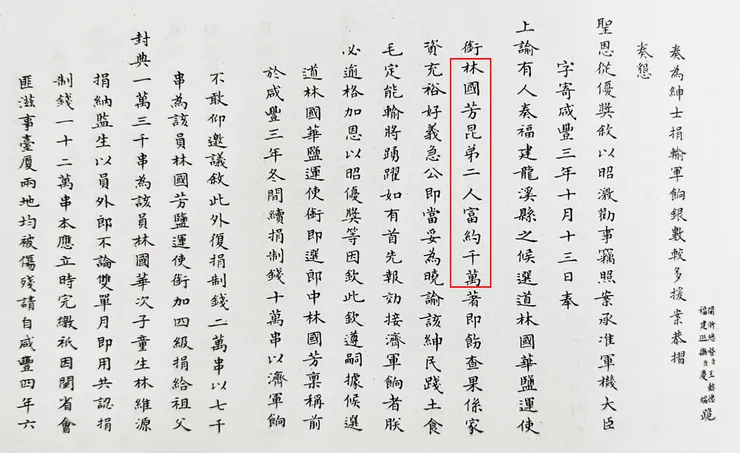 閩浙總督臣王懿德
福建巡撫 慶 跪
奏為紳士捐輸軍餉銀數較多援案恭摺
奏懇
聖恩從優獎敘以昭激勸事竊照案承准軍機大臣
字寄咸豐三年十月十三日奉
上諭有人奏福建龍溪縣之候選道林國華鹽運使
銜林國芳昆弟二人富約千萬著即飭查果係家
貲充裕好義急公即當妥為曉諭該紳民踐土食
毛定能輸將踴躍如有首先報効接濟軍餉者朕
必逾格加恩以昭優獎等因欽此欽遵嗣據候選
道林國華鹽運使銜即選郎中林國芳稟稱前
於咸豐三年冬間續捐制錢十萬串以濟軍餉
不敢仰邀議敘此外復捐制錢二萬串以七千
串為該員林國芳鹽運使銜加四級捐給祖父
封典一萬三千串為該員林國華次子童生林維源
捐納監生以員外郎不論雙單月即用共認捐
制錢一十二萬串本應立時完繳祇因閩省會
匪滋事臺厦兩地均被傷殘請自咸豐四年六